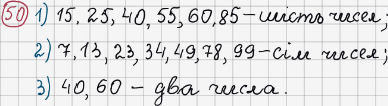 50 1) 15, 25, 40, 55, 60, 85 – шість чисел;
2) 7, 13, 23, 34, 49, 78, 99 – сім чисел;
3) 40, 60 – два числа.